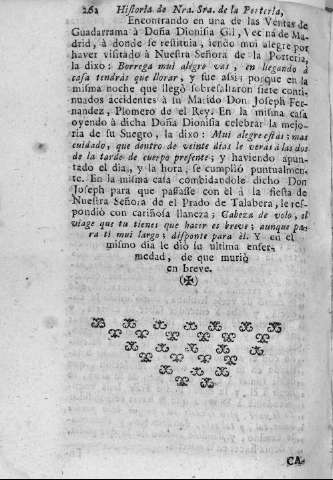 262 Historia de Nra. Sra. de la Porteria,
Encontrando en una de las Ventas de
Guadarrama à Doña Dionisia Gil, Vecina de Ma-
drid, à donde se restituia, iendo mui alegre por
haver visitado à Nuestra Señora de la Porteria,
la dixo: Borrega mui alegre vàs, en llegando à
casa tendràs que llorar, y fue assi; porque en la
misma noche que llegò sobresaltaron siete conti-
nuados accidentes à su Marido Don Joseph Fer-
nandez, Plomero de el Rey. En la misma casa
oyendo à dicha Doña Dionisia celebrar la mejo-
ria de su Suegro, la dixo: Mui alegre estàs; mas
cuidado, que dentro de veinte dias le veràs a las dos
de la tarde de cuerpo presente; y haviendo apun-
tado el dia, y la hora, se cumpliò puntualmen-
te. En la misma casa combidandole dicho Don
Joseph para que passasse con èl à la fiesta de
Nuestra Señora de el Prado de Talabera, le res-
pondiò con cariñosa llaneza; Cabeza de volo, el
viage que tu tienes que hacer es breve; aunque pa-
ra ti mui largo; disponte para èl. Y en el
mismo dia le diò su ultima enfer-
medad, de que muriò
en breve.
CA-